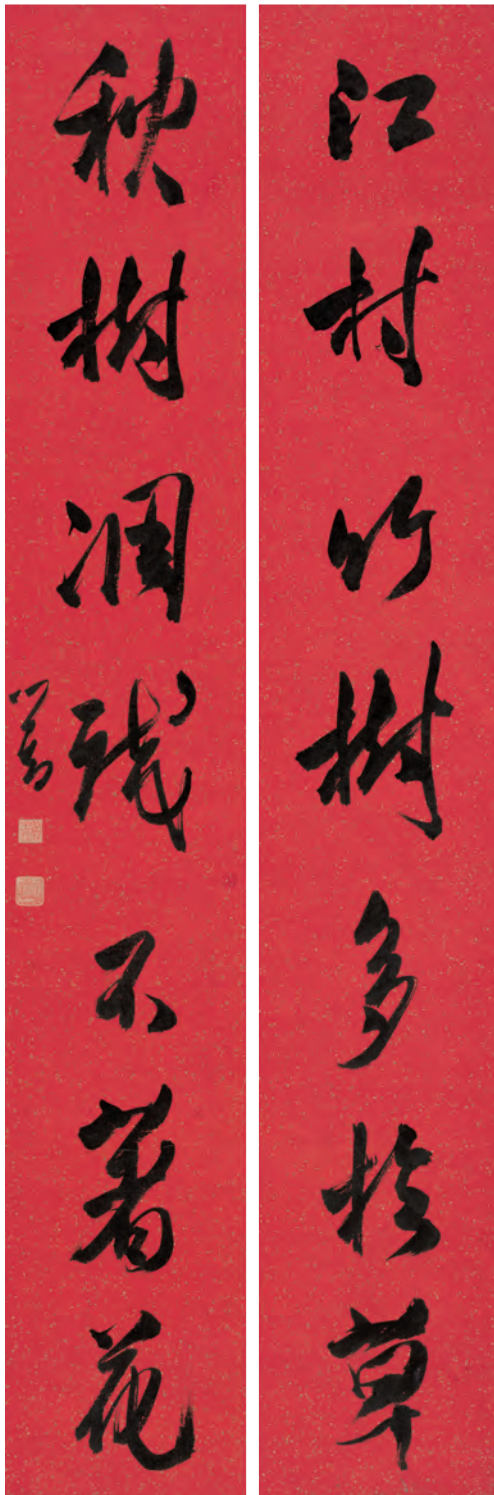 江村竹樹多於草
秋樹凋殘不著花